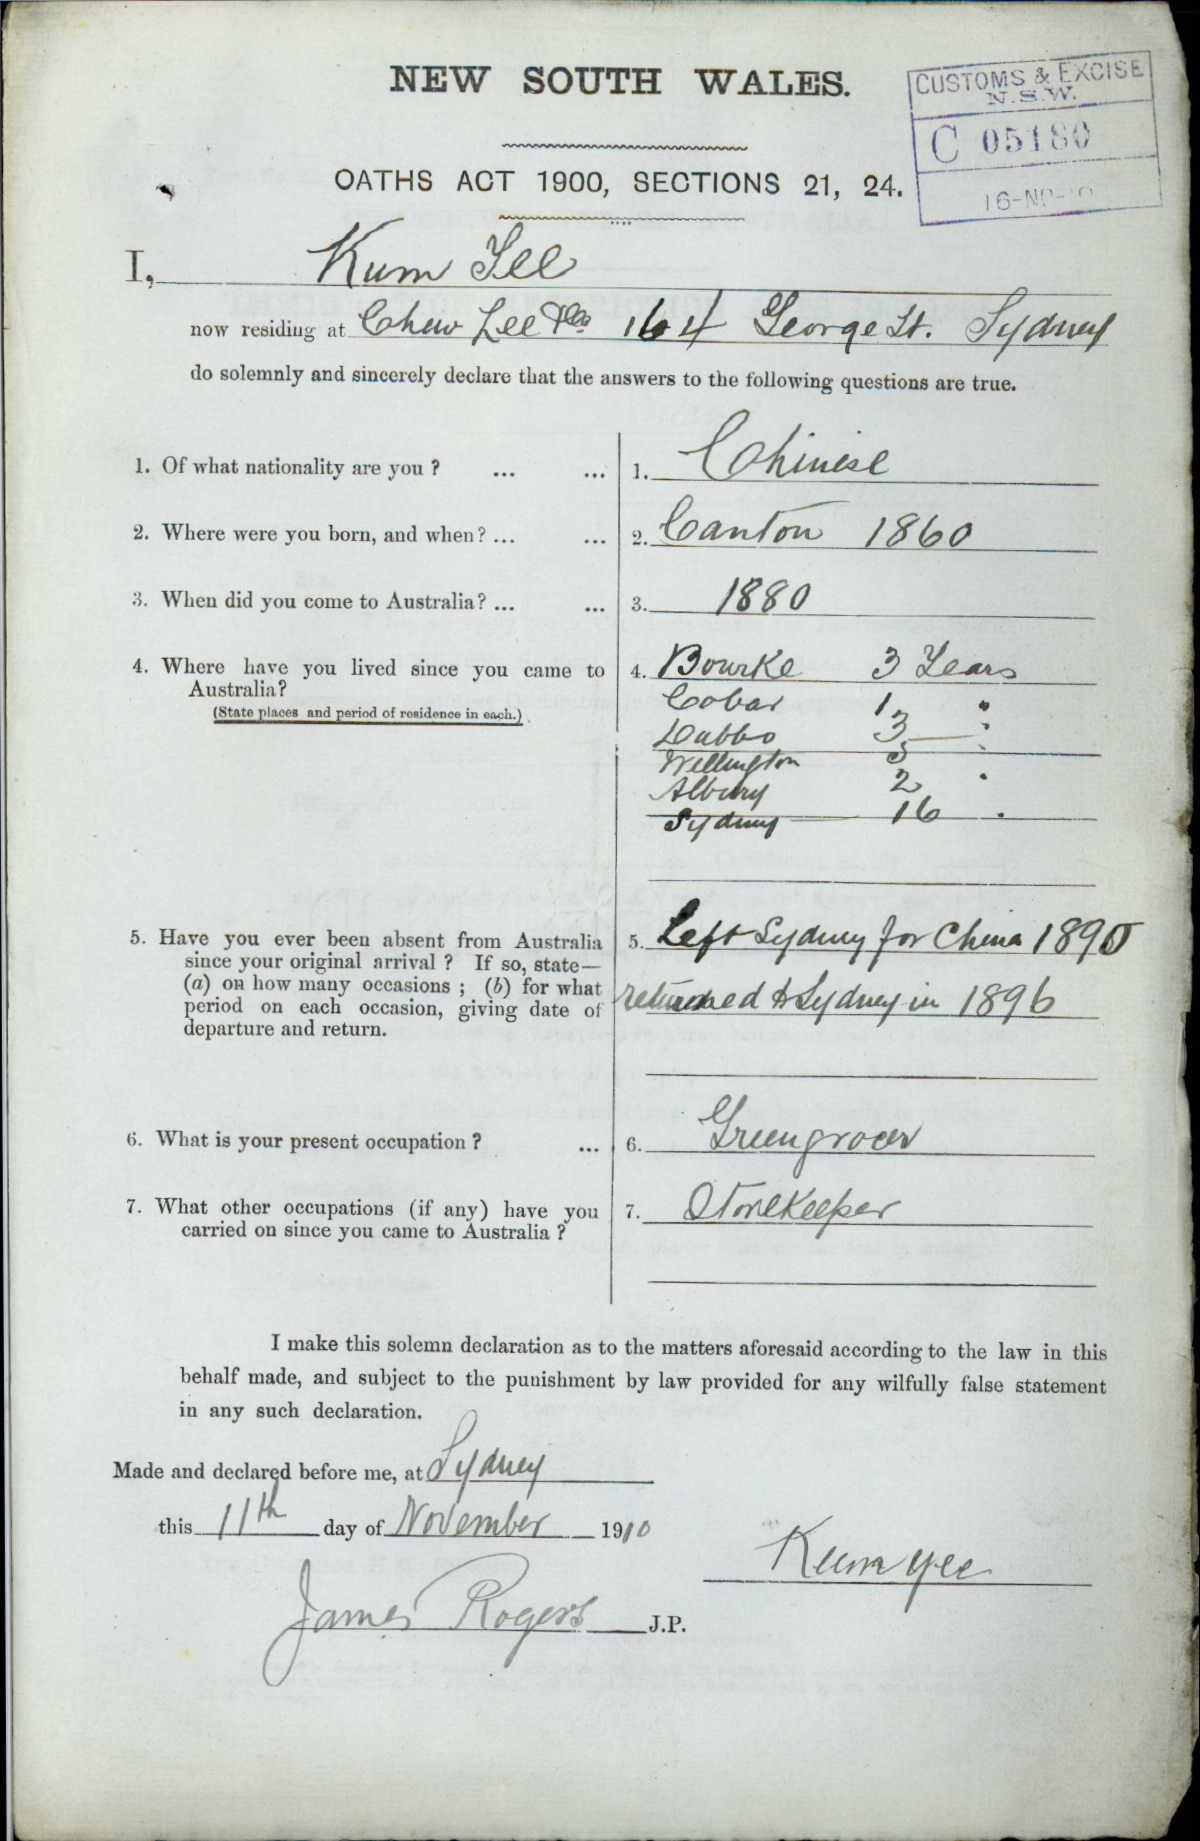 NEW SOUTH WALES.
CUSTOMS & EXCISE
N.S.W.
C 05180
16-NO-10
OATHS ACT 1900, SECTIONS 21, 24.
I, Kum Yee
now residing at Chew Lee & Co 164 George St. Sydney
do solemnly and sincerely declare that the answers to the following questions are true.
1. Of what nationality are you ? ... ... 1. Chinese
2. Where were you born, and when? ... ... 2. Canton 1860
3. When did you come to Australia? ... ... 3. 1880
4. Where have you lived since you came to 4. Bourke 3 Years
Australia?
(State places and period of residence in each.)
Cobar 1 "
Dubbo 3 "
Wellington 5 "
Albury 2 "
Sydney 16 "
5. Have you ever been absent from Australia 5. Left Sydney for China 1895
since your original arrival ? If so, state—
(a) on how many occasions ; (b) for what returned to Sydney in 1896
period on each occasion, giving date of
departure and return.
6. What is your present occupation ? ... 6. Greengrocer
7. What other occupations (if any) have you 7. Storekeeper
carried on since you came to Australia ?
I make this solemn declaration as to the matters aforesaid according to the law in this
behalf made, and subject to the punishment by law provided for any wilfully false statement
in any such declaration.
Made and declared before me, at Sydney
this 11th day of November 1910
Kum Yee
James Rogers J.P.